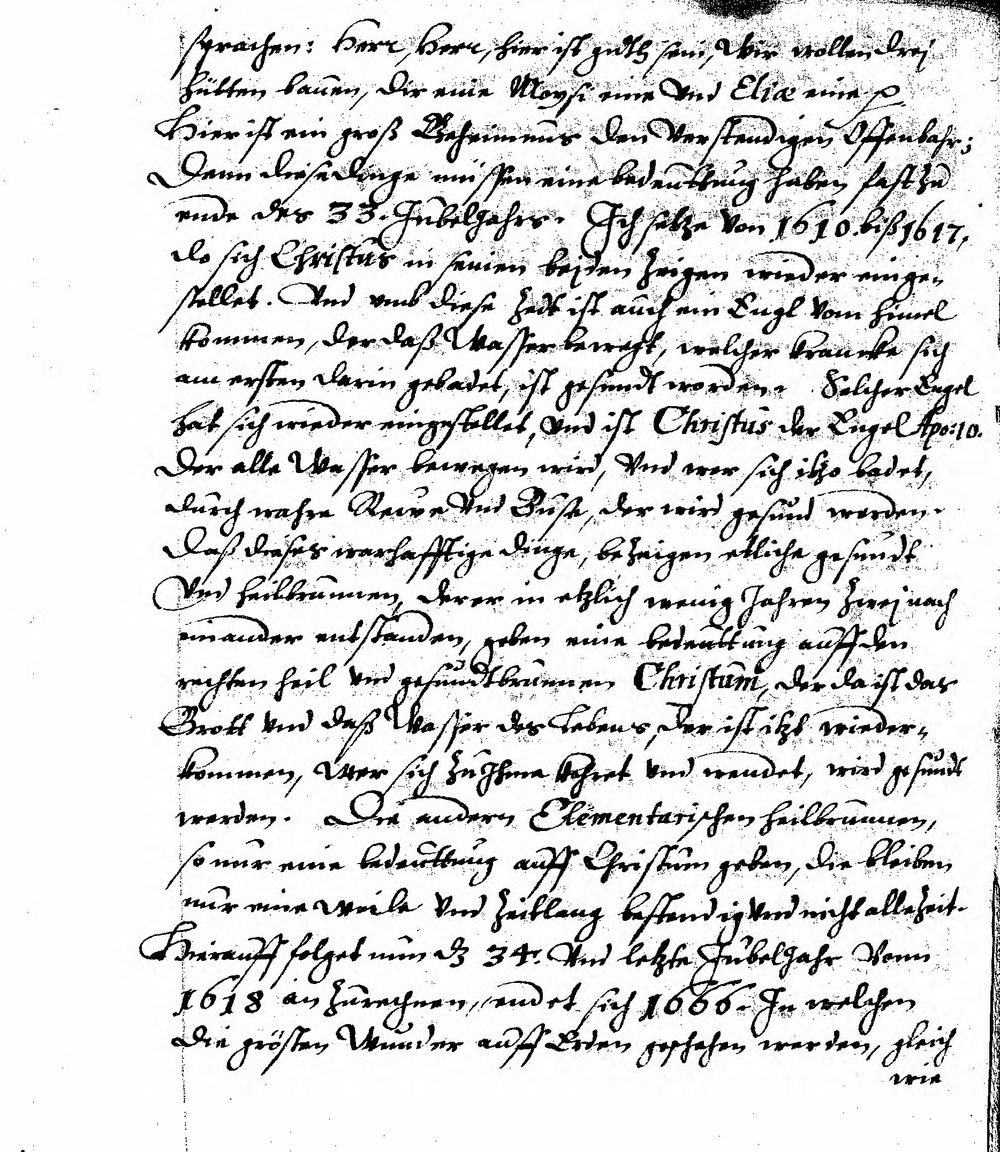 sprachen: Herr, Herr, hier ist gudt sein, Wir wollen drej
hütten bauen, dir eine Moysi eine Vnd Eliæ eine
Hier ist ein groß Geheimnus den Verstendigen Offenbahr;
Denn diese dinge müssen eine bedeuttung haben fast zu
ende des 33. Jubeljahrs. Ich setze von 1610. biß 1617,
do sich Christus in seinen beyden Zeigen wieder einge-
stellet. Vnd vmb diese Zeit ist auch ein Engl vom himel
kommen, der daß Wasser bewegt, welcher krancke sich
am ersten darin gebadet, ist gesundt worden. Solcher Engel
hat sich wieder eingestellet, vnd ist Christus der Engel Apo: 10.
Der alle Wasser bewegen wird, Vnd wer sich itzo badet,
durch wahre Rewe Vnd Buse, der wird gesund werden.
Daß dieses warhafftige dinge, bezeigen etliche gesundt
Vnd heilbrunnen, derer in etzlich wenig Jahren zwej nach
einander entstanden, geben eine bedeuttung auff den
rechten heil vnd gesundtbrunnen Christum, der da ist das
Brott vnd daß Wasser des Lebens, der ist itzt wieder-
kommen, Wer sich zu Ihme kehret vnd wendet, wird gesundt
werden. Die andern Elementarischen heilbrunnen,
so nur eine bedeuttung auff Christum geben, die bleiben
nur eine weile Vnd Zeitlang bestendig vnd nicht allezeit.
Hierauff folget nun dz 34. Vnd letzte Jubeljahr Vonn
1618 an zurechnen, endet sich 1666. In welchen
die grösten Wunder auff Erden geschehen werden, gleich
wie